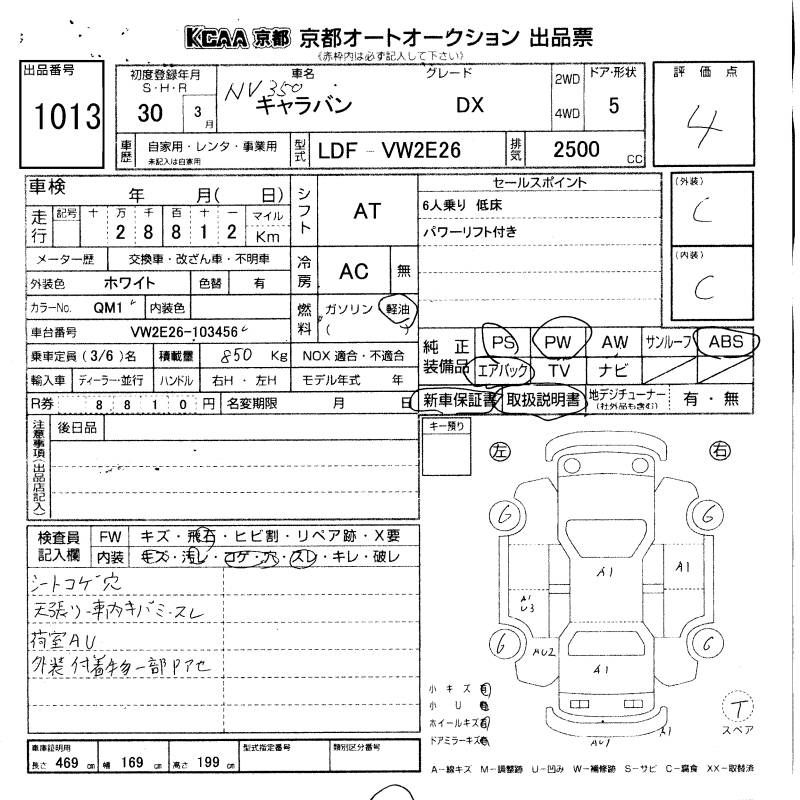 KCAA 京都 京都オートオークション 出品票
(赤枠内は必ず記入して下さい)
出品番号
1013
初度登録年月
S・H・R
30 3月
車名 グレード
NV350
キャラバン DX
2WD
4WD
ドア・形状
5
評価点
4
車歴 自家用・レンタ・事業用
未記入は自家用
型式 LDF － VW2E26 排気 2500 cc
車検 年 月( 日)
走行 記号 十 万 千 百 十 一 マイル
2 8 8 1 2 Km
メーター歴 交換車・改ざん車・不明車
外装色 ホワイト 色替 有
カラーNo. QM1 内装色
車台番号 VW2E26-103456
乗車定員 (3/6)名 積載量 850 Kg
輸入車 ディーラー・並行 ハンドル 右H・左H
R券 8 8 1 0 円 名変期限 月 日
シフト AT
冷房 AC 無
燃料 ガソリン 軽油
( )
NOX 適合・不適合
モデル年式 年
セールスポイント
6人乗り 低床
パワーリフト付き
(外装)
C
(内装)
C
純正装備品 PS PW AW サンルーフ ABS
エアバック TV ナビ
新車保証書 取扱説明書 地デジチューナー 有・無
(社外品も含む)
注意事項(出品店記入)
後日品
キー預り
検査員記入欄
FW キズ・飛石・ヒビ割・リペア跡・X要
内装 キズ・汚レ・コゲ・穴・スレ・キレ・破レ
シートコゲ穴
天張り・車内キバミ・スレ
荷室AU
外装付着物一部Pアセ
左 右
G G
A1 A1
A1
U3
G G
AU2
A1
小キズ 有
小U 有
ホイールキズ 有
ドアミラーキズ 有
AU1 A1
T
スペア
車庫証明用
長さ 469 cm 幅 169 cm 高さ 199 cm
型式指定番号 類別区分番号
A－線キズ M－調整跡 U－凹み W－補修跡 S－サビ C－腐食 XX－取替済